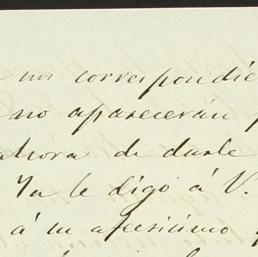 mi correspondie
no aparecerán p
ahora de darle
Ya le digo á V.
á su afmo